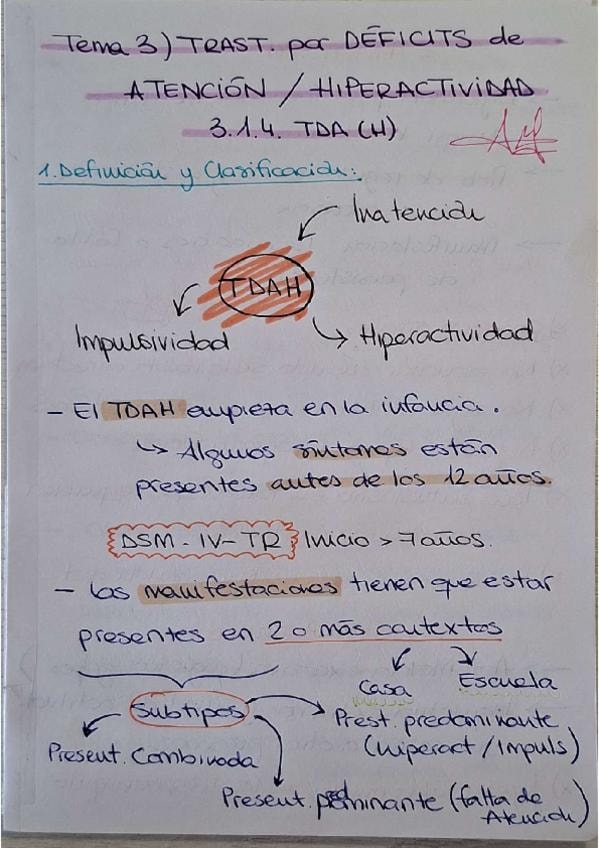 Tema 3) TRAST. por DÉFICITS de
ATENCIÓN / HIPERACTIVIDAD
3.1.4. TDA (H)
1. Definición y Clasificación:
Inatención
TDAH
Impulsividad
Hiperactividad
- El TDAH empieza en la infancia.
↳ Algunos síntomas están
presentes antes de los 12 años.
DSM-IV-TR Inicio > 7 años.
- Las manifestaciones tienen que estar
presentes en 2 o más contextos
Casa
Escuela
Subtipos
Prest. predominante
(hiperact / Impuls)
Present. Combinada
Present. predminante (falta de
Atención)